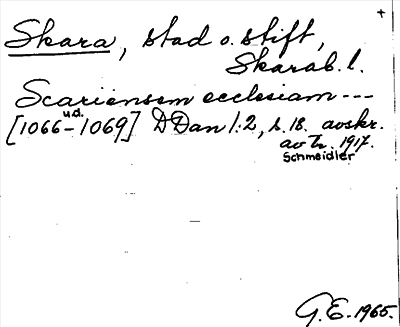 +
Skara, stad o. stift,
Skarab. l.
Scariensem ecclesiam ---
u.d.
[1066-1069] DDan 1:2, s. 18. avskr.
av 1917.
Schmeidler
G. E. 1965.